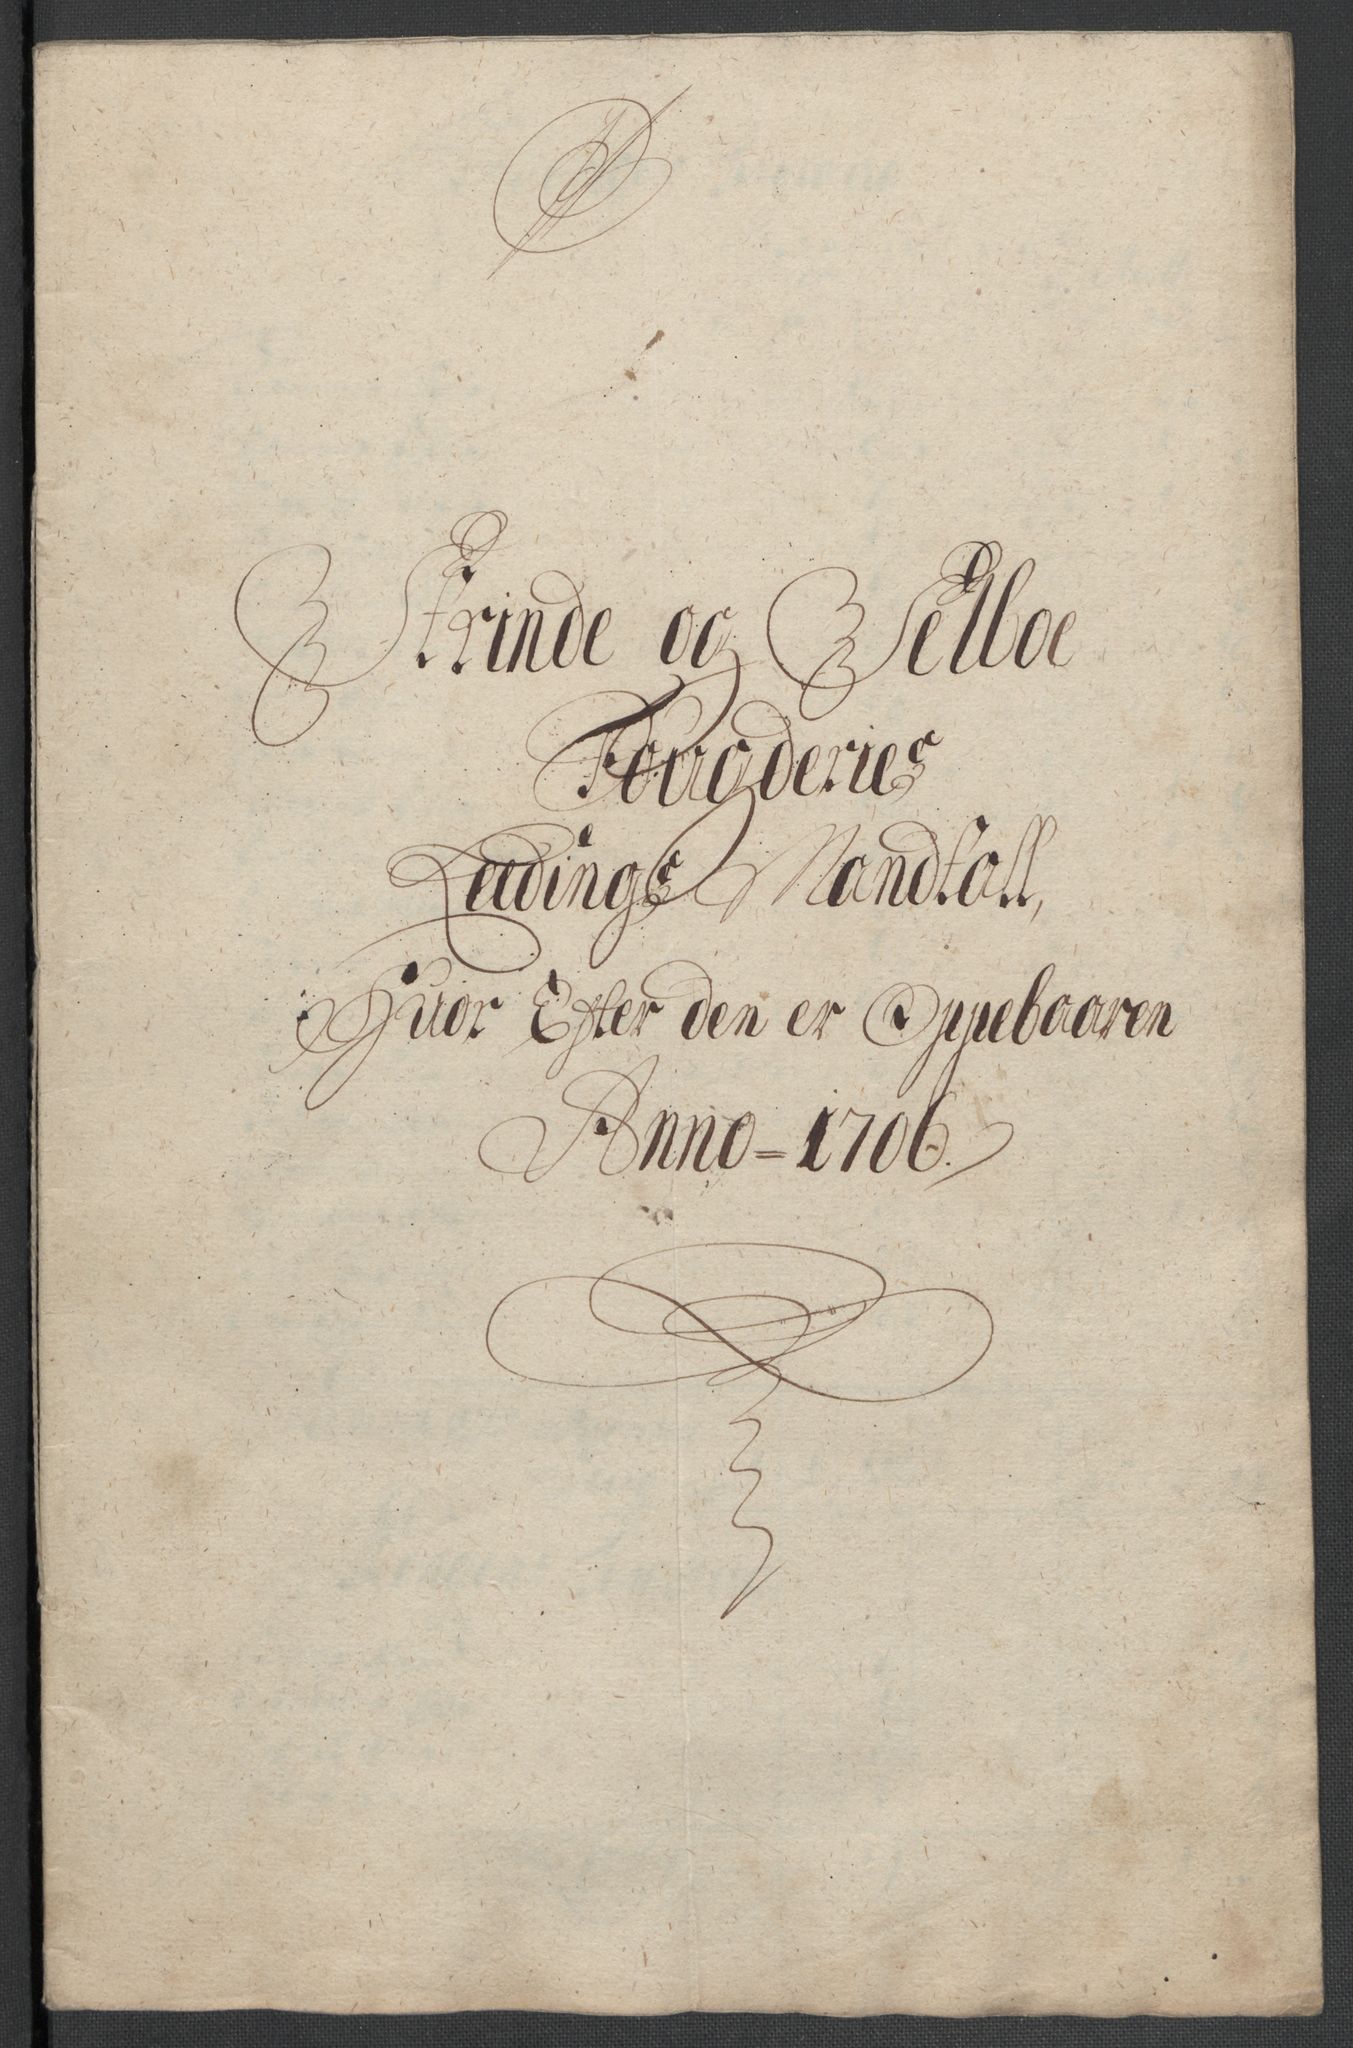 Strinde og Selboe
Fougderies
Ledings Mandtall,
Huor Efter den er Oppebaaren
Anno = 1706.